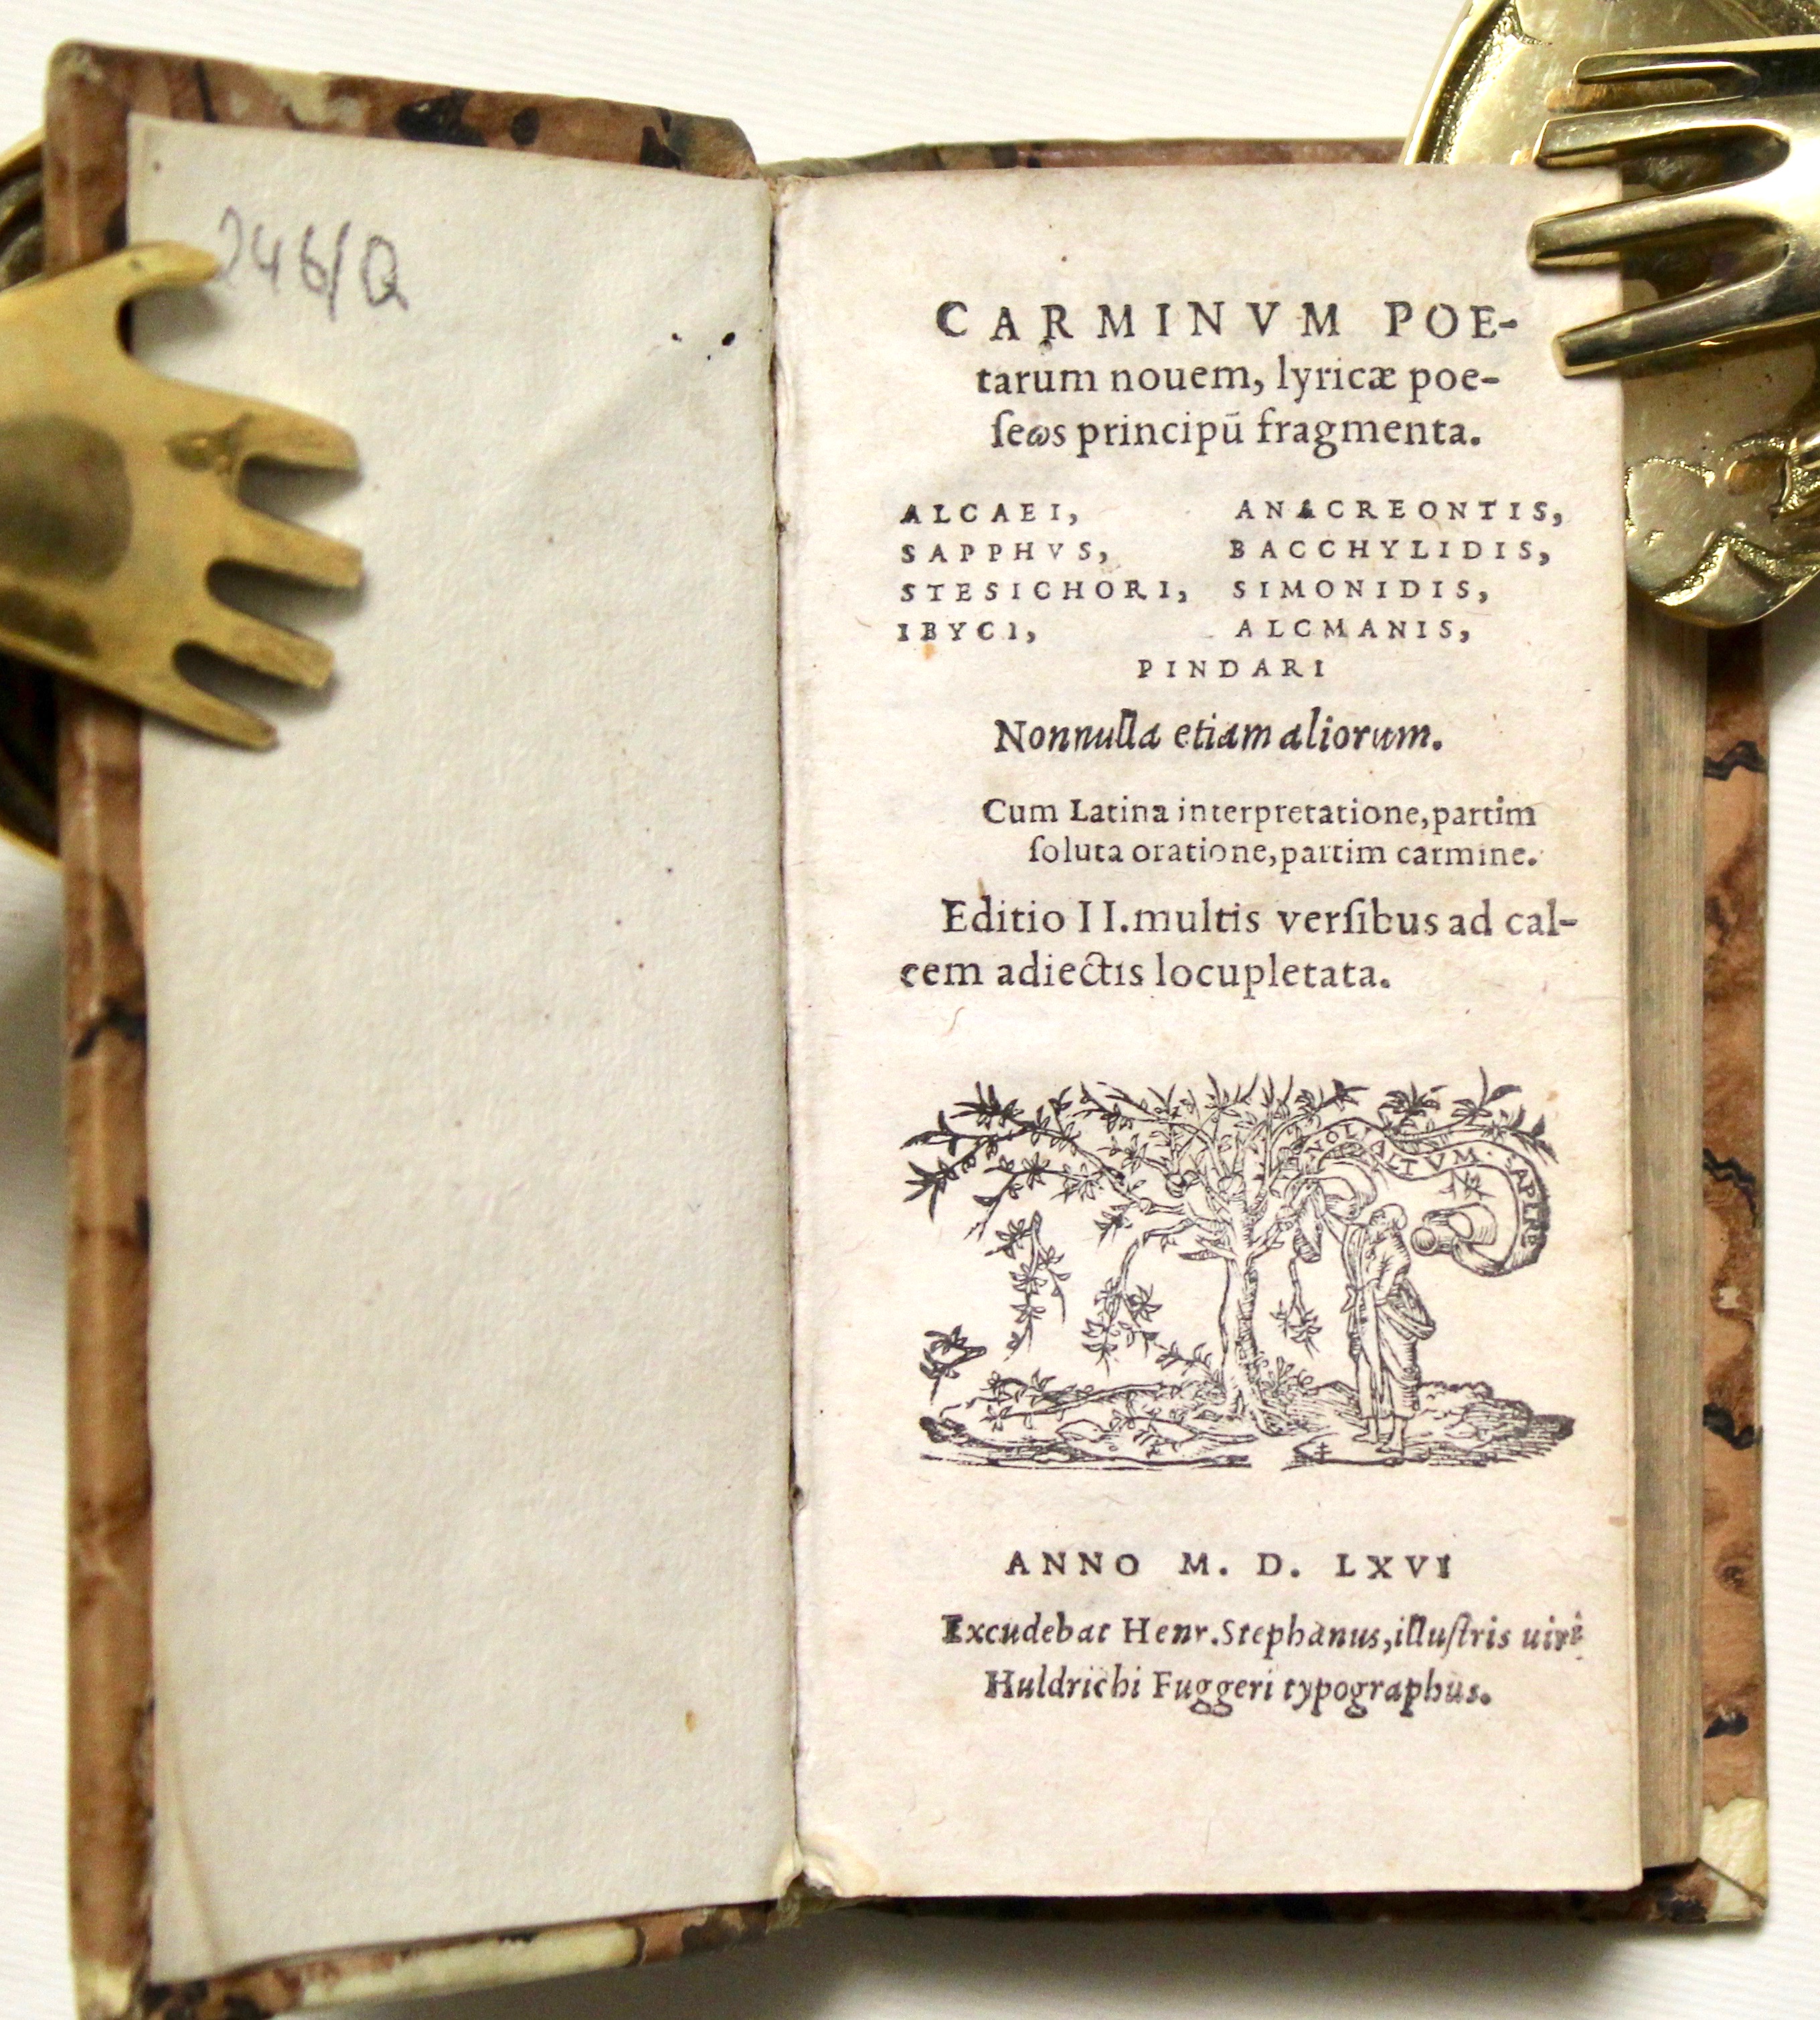 246/Q
CARMINVM POE-
tarum nouem, lyricæ poe-
ſeωs principū fragmenta.
ALCAEI, ANACREONTIS,
SAPPHVS, BACCHYLIDIS,
STESICHORI, SIMONIDIS,
IBYCI, ALCMANIS,
PINDARI
Nonnulla etiam aliorum.
Cum Latina interpretatione, partim
ſoluta oratione, partim carmine.
Editio II. multis verſibus ad cal-
cem adiectis locupletata.
NOLI ALTVM SAPERE
ANNO M. D. LXVI
Excudebat Henr. Stephanus, illuſtris uiri
Huldrichi Fuggeri typographus.